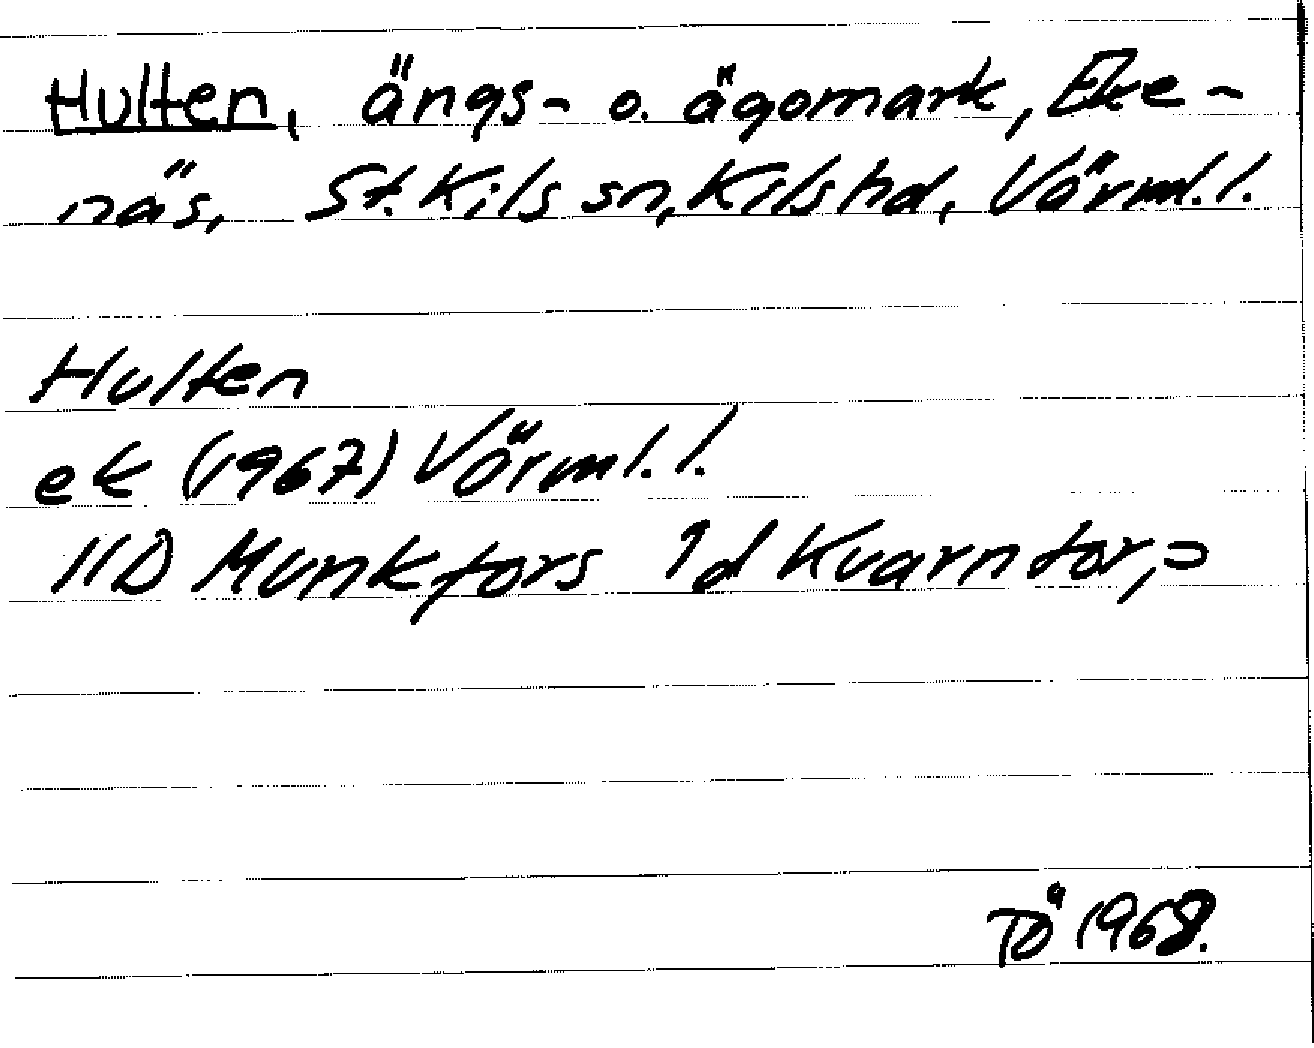 Hulten, ängs- o. ägomark, Eke-
näs, St. Kils sn, Kils hd, Värml. l.
Hulten
ek (1967) Värml. l.
11D Munkfors 1d Kvarntor,
Tö 1968.